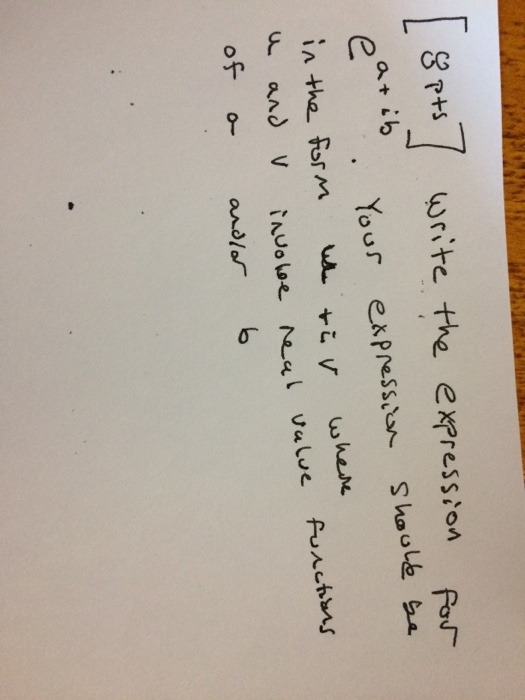 [8 pts] Write the expression for
e^{a+ib}. Your expression should be
in the form u + i v where
u and v involve real value functions
of a and/or b